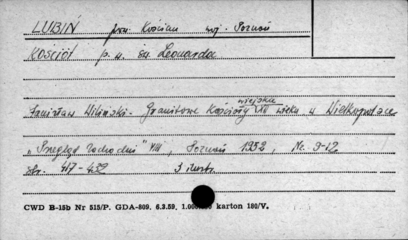 LUBIŃ pow. Kościan woj. Poznań
KOŚCIÓŁ p. w. św. Leonarda
wiejskie
Stanisław Wiliński - Granitowe Kościoły XIII wieku w Wielkopolsce
„Przegląd Zachodni" VIII, Poznań 1952, Nr. 9-12
str. 417-432 3 ilustr.
CWD B-15b Nr 515/P. GDA-809. 6.3.59, 1.000. karton 180/V.